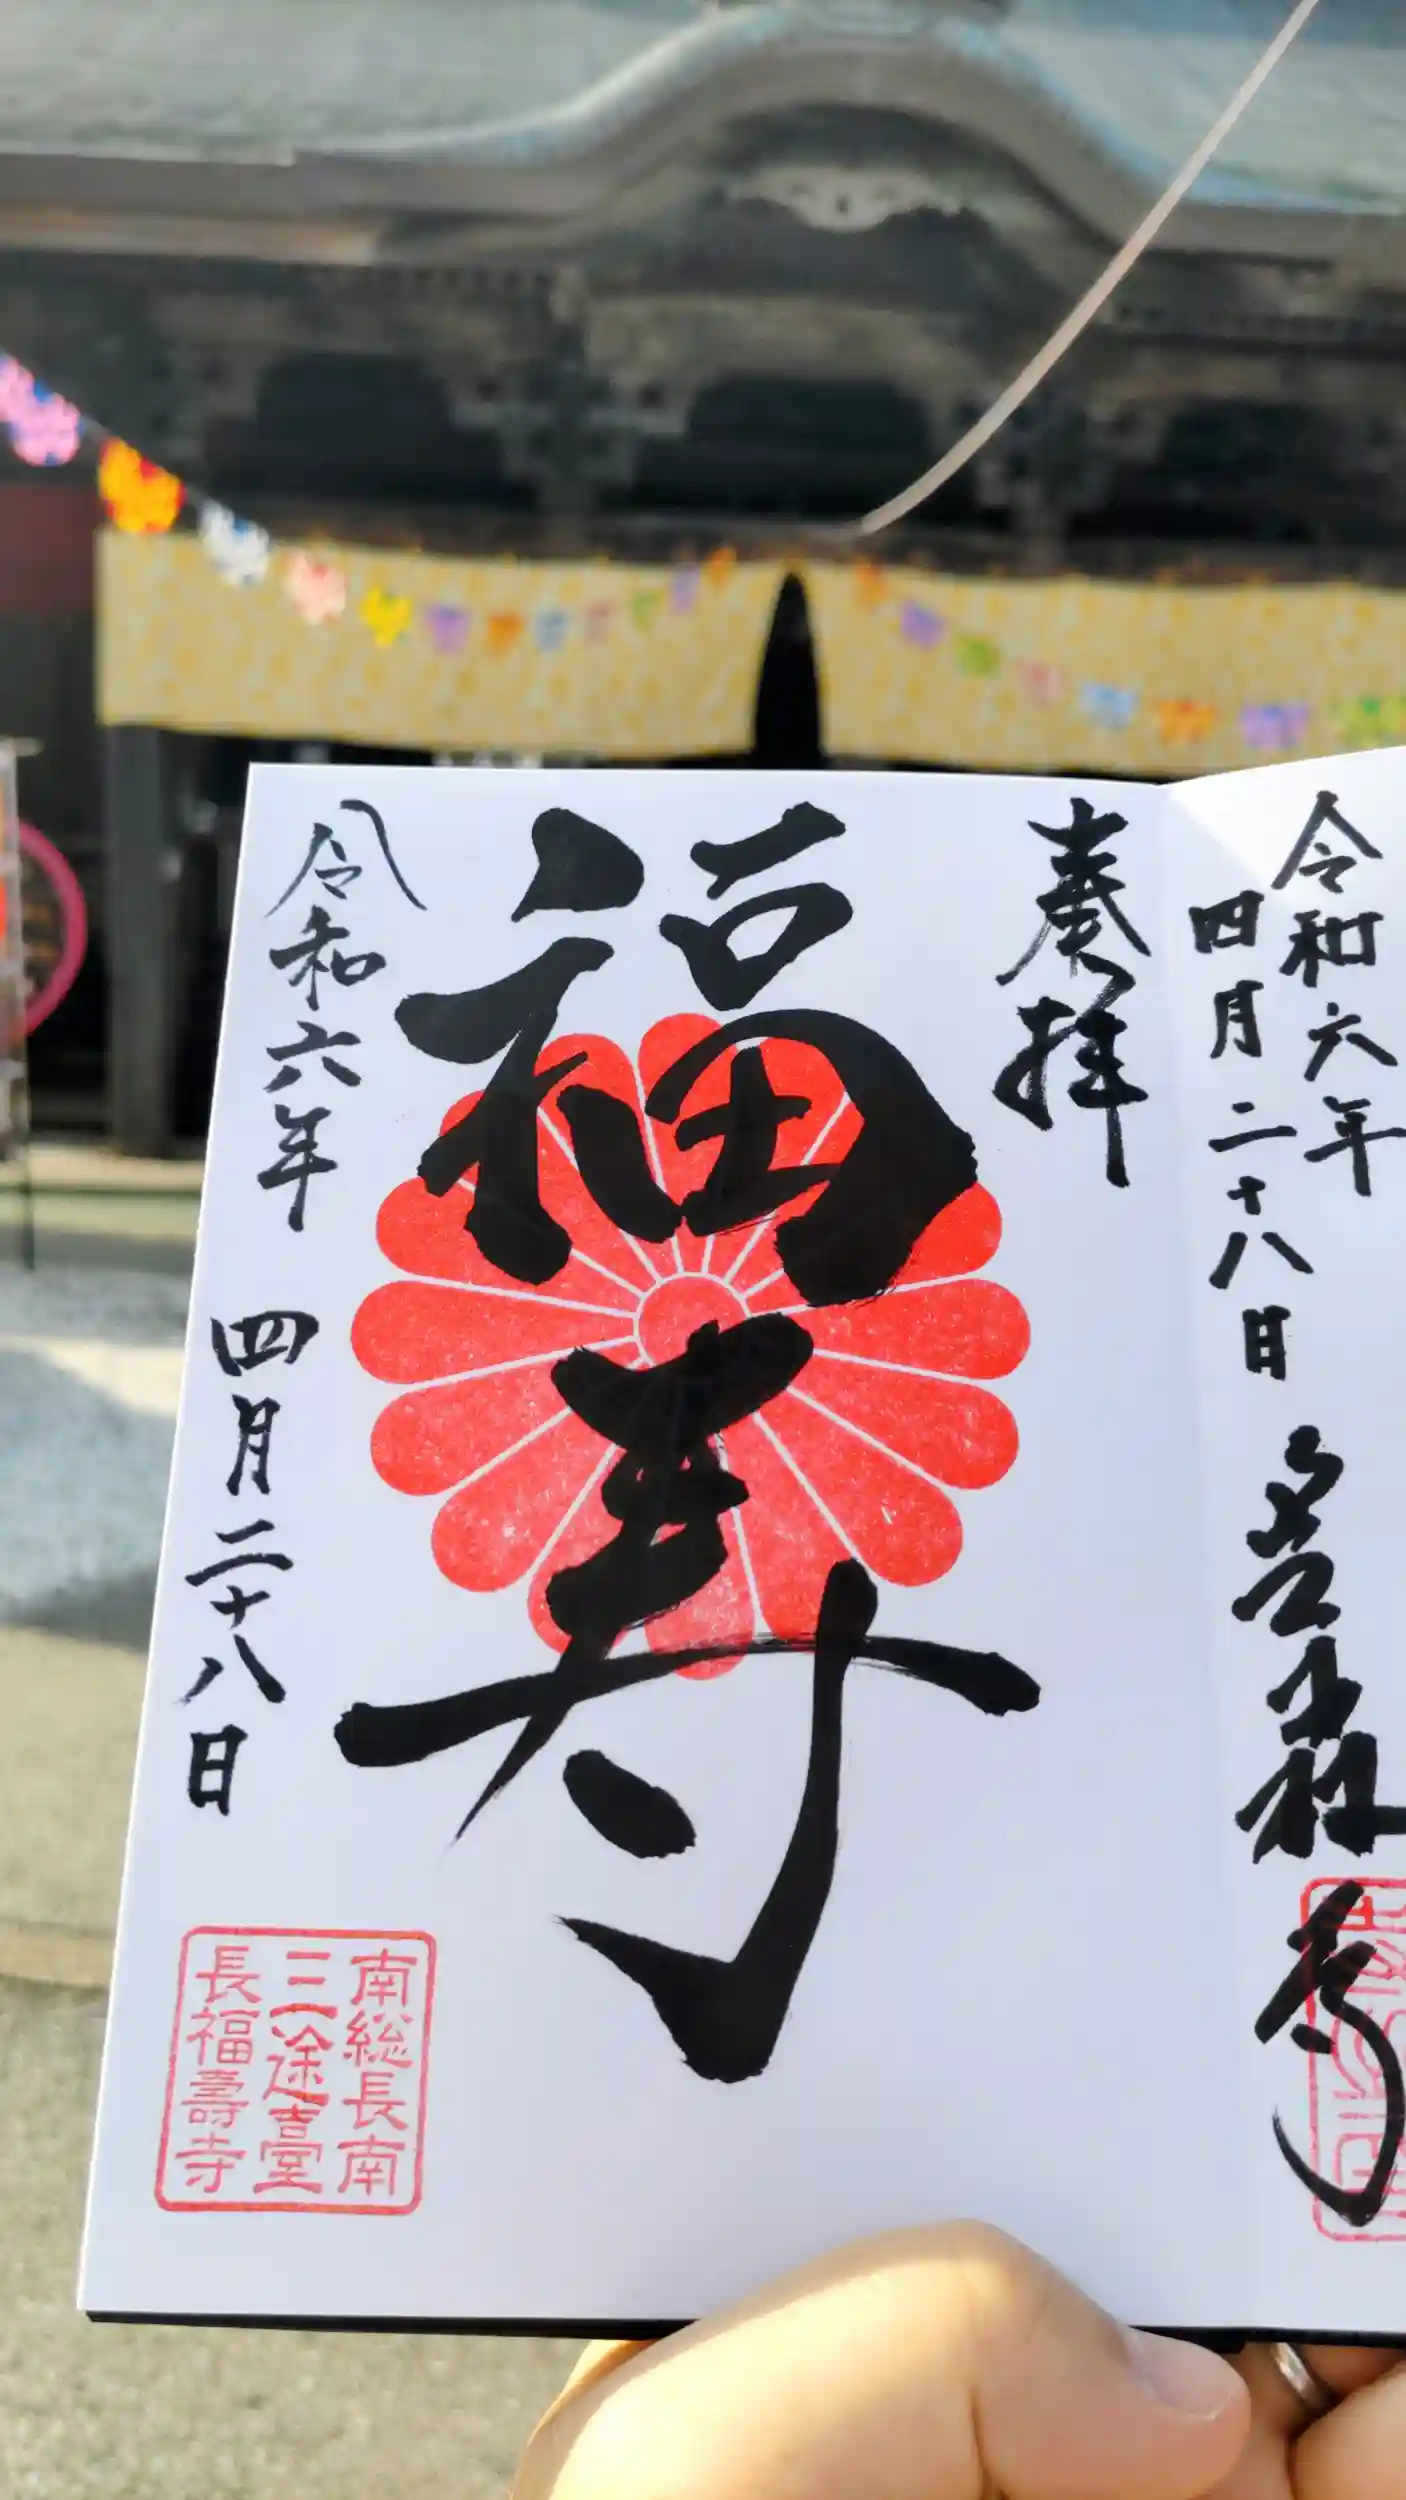 令和六年
四月二十八日
奉拝
福寿
令和六年
四月二十八日
南総長南
三途臺
長福壽寺